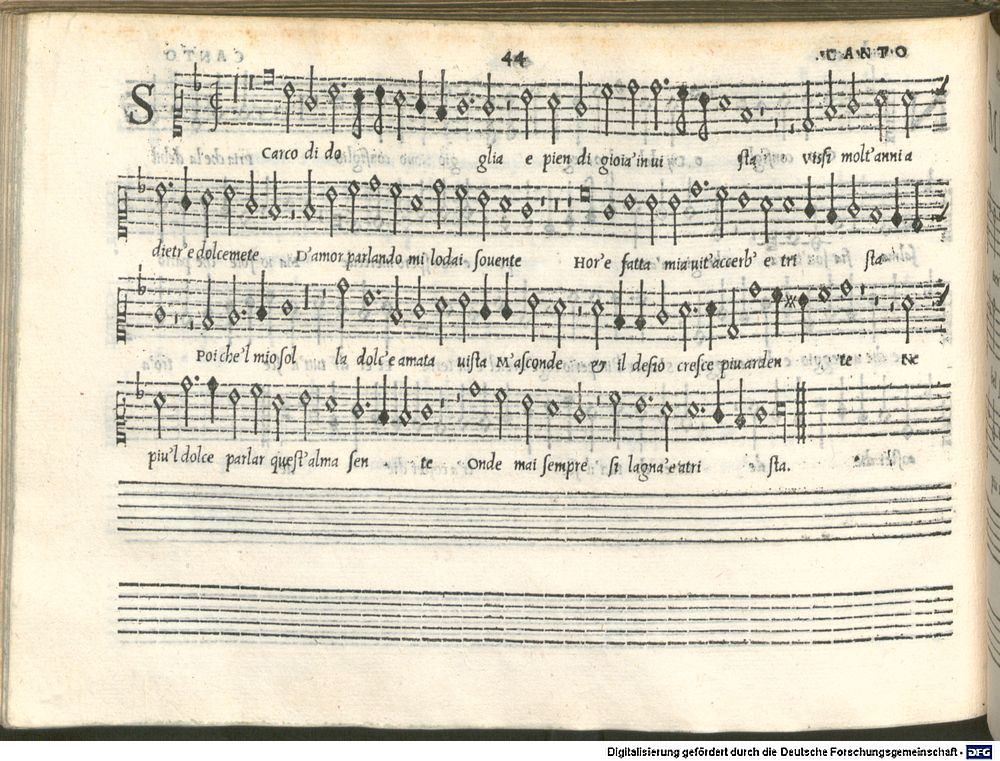 44
CANTO
S
Carco di do glia e pien di gioia' in ui sta uissi molt' anni a
dietr' e dolcemete D'amor parlando mi lodai souente Hor' e fatta mia uit' accerb' e tri sta
Poi che'l mio sol la dolc' e amata uista M'asconde & il desio cresce piu arden te Ne
piu'l dolce parlar quest' alma sen te Onde mai sempre si lagna' e atri sta.
Digitalisierung gefördert durch die Deutsche Forschungsgemeinschaft - DFG